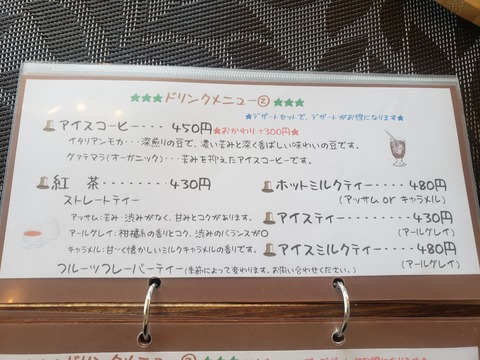 ★★★ドリンクメニュー②★★★
★デザートセットで、デザートがお得になります★
アイスコーヒー・・・450円 ★おかわり+300円★
イタリアンモカ・・・深煎りの豆で、濃い苦みと深く香ばしい味わいの豆です。
グァテマラ(オーガニック)・・・苦みを抑えたアイスコーヒーです。
紅 茶・・・・430円
ストレートティー
アッサム:苦み・渋みがなく、甘みとコクがあります。
アールグレイ:柑橘系の香りとコク、渋みのバランスが〇
キャラメル:甘~く懐かしいミルクキャラメルの香りです。
フルーツフレーバーティー(季節によって変わります。お問い合わせください。)
ホットミルクティー・・・・480円
(アッサム or キャラメル)
アイスティー・・・・・430円
(アールグレイ)
アイスミルクティー・・・・480円
(アールグレイ)
ドリンクメニュー